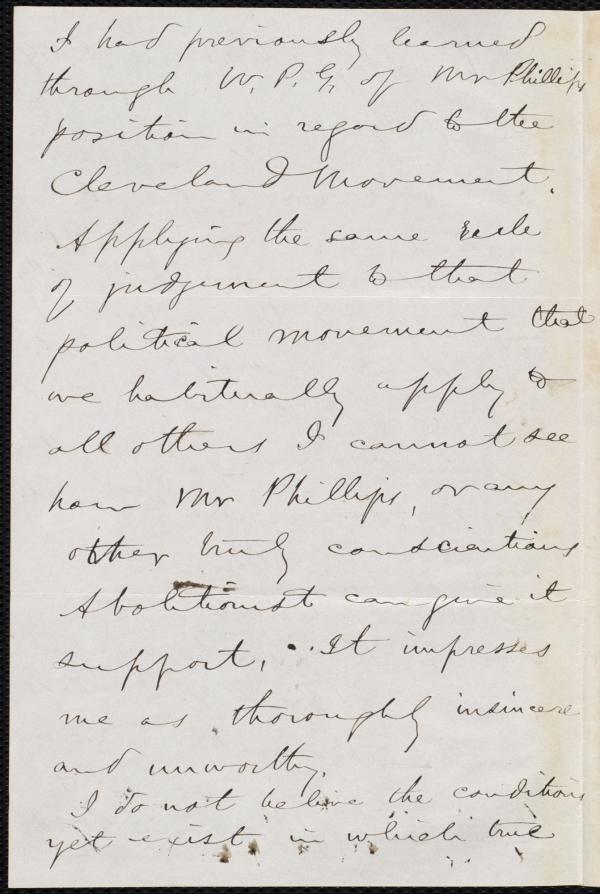 I had previously learned
through W. P. G. of Mr Phillips
position in regard to the
Cleveland Movement.
Applying the same rule
of judgement to that
political movement that
we habitually apply to
all others I cannot see
how Mr Phillips, or any
other truly conscientious
Abolitionist can give it
support. It impresses
me as thoroughly insincere
and unworthy.
I do not believe the conditions
yet exist in which true